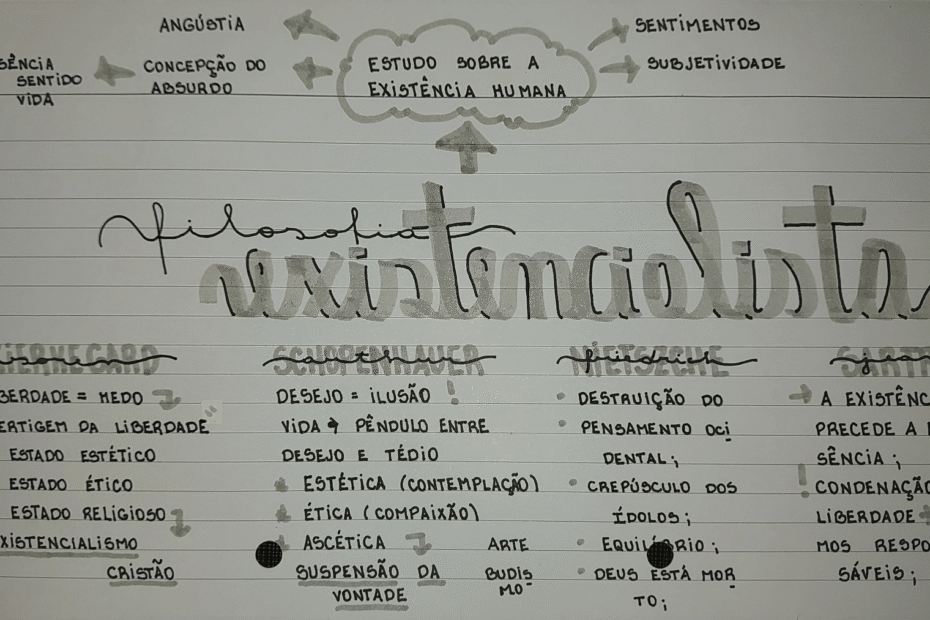 ANGÚSTIA
SENTIMENTOS
SÊNCIA
SENTIDO
VIDA
CONCEPÇÃO DO
ABSURDO
ESTUDO SOBRE A
EXISTÊNCIA HUMANA
SUBJETIVIDADE
filosofia
existencialista
soren
KIERKEGARD
BERDADE = MEDO
ERTIGEM DA LIBERDADE
ESTADO ESTÉTICO
ESTADO ÉTICO
ESTADO RELIGIOSO
XISTENCIALISMO
CRISTÃO
arthur
SCHOPENHAUER
DESEJO = ILUSÃO !
VIDA → PÊNDULO ENTRE
DESEJO E TÉDIO
ESTÉTICA (CONTEMPLAÇÃO)
ÉTICA (COMPAIXÃO)
ASCÉTICA
SUSPENSÃO DA
VONTADE
ARTE
BUDIS
MO
friedrich
NIETSZCHE
• DESTRUIÇÃO DO
• PENSAMENTO OCI
DENTAL;
• CREPÚSCULO DOS
ÍDOLOS;
• EQUILÍBRIO;
• DEUS ESTÁ MOR
TO;
jean
SARTR
→ A EXISTÊNC
PRECEDE A
SÊNCIA;
! CONDENAÇÃO
LIBERDADE
MOS RESPO
SÁVEIS;